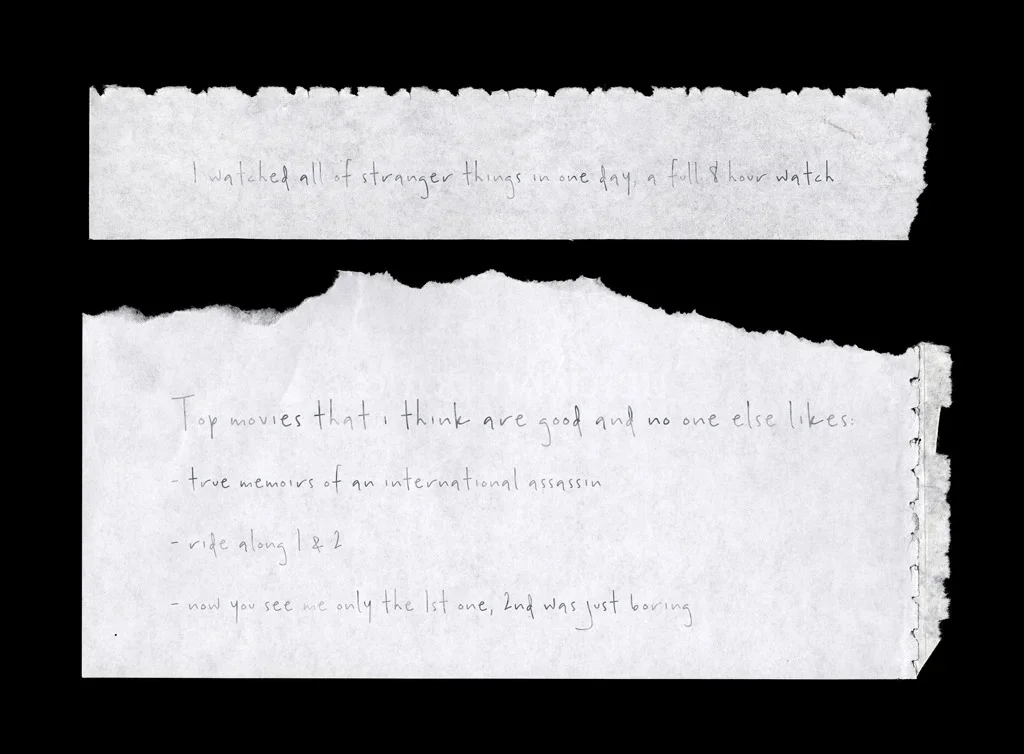 I watched all of stranger things in one day, a full 8 hour watch
Top movies that i think are good and no one else likes:
- true memoirs of an international assassin
- ride along 1 & 2
- now you see me only the 1st one, 2nd was just boring